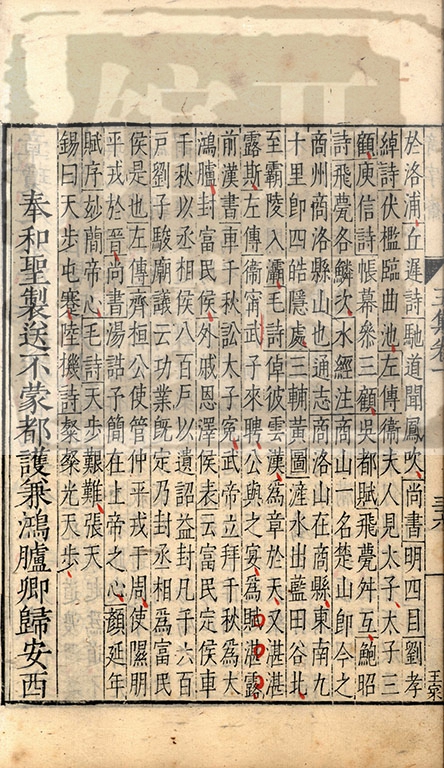 於洛浦丘遲詩馳道聞鳳吹尚書明四目劉孝
綽詩伏檻臨曲池左傳衞夫人見太子太子三
顧庾信詩帳幕參三顧吳都賦飛甍舛互鮑昭
詩飛甍各鱗次水經注商山一名楚山卽今之
商州商洛縣山也通志商洛山在商縣東南九
十里卽四皓隱處三輔黃圖滻水出藍田谷北
至霸陵入灞毛詩倬彼雲漢爲章於天又湛湛
露斯左傳衞甯武子來聘公與之宴爲賦湛露
前漢書車千秋訟太子寃武帝立拜千秋爲大
鴻臚封富民侯外戚恩澤侯表云富民定侯車
千秋以丞相侯八百戶以遺詔益封凡千六百
戶劉子駿廟議云功業旣定乃封丞相爲富民
侯是也左傳齊桓公使管仲平戎于周使隰朋
平戎於晉尚書湯誥予簡在上帝之心顏延年
賦序妙簡帝心毛詩天步艱難張天
錫曰天步屯蹇陸機詩粲粲光天步
奉和聖製送不蒙都護兼鴻臚卿歸安西